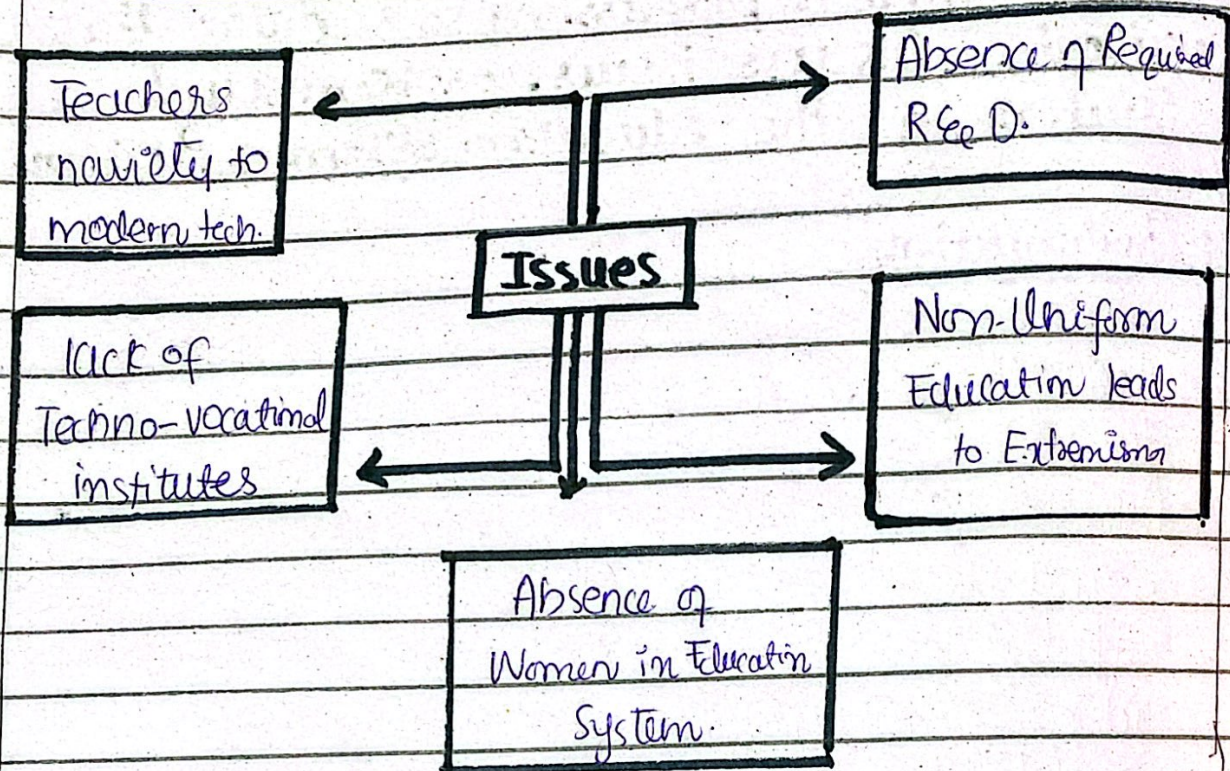 Teachers
naviety to
modern tech.
Absence of Required
R&D.
Issues
lack of
Techno-vocational
institutes
Non-Uniform
Education leads
to Extremism
Absence of
Women in Education
System.